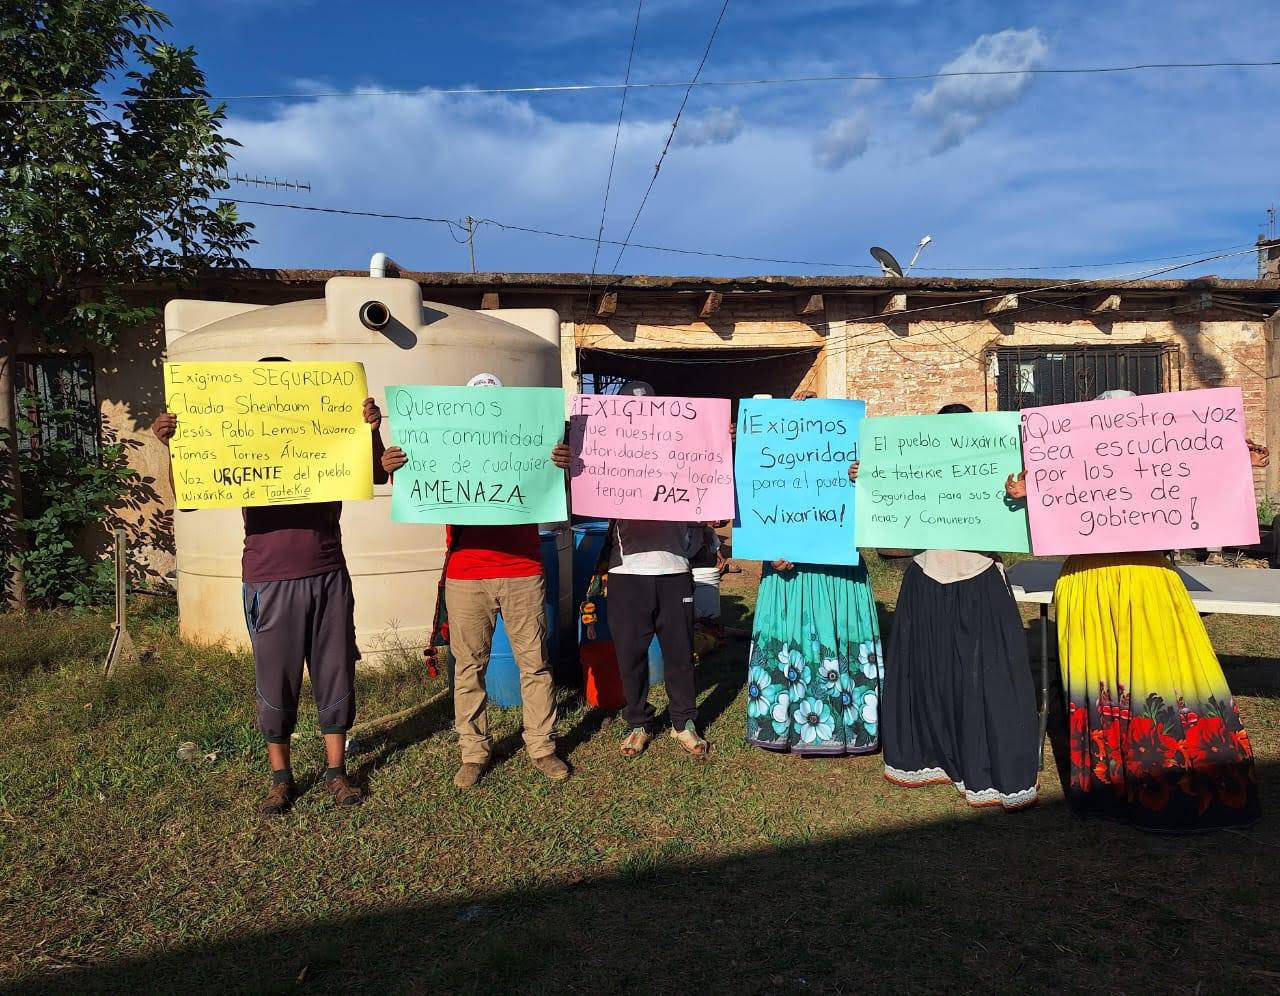 Exigimos SEGURIDAD:
Claudia Sheinbaum Pardo
Jesús Pablo Lemus Navarro
Tomás Torres Álvarez
Voz URGENTE del pueblo
Wixárika de Taatekie
Queremos
una comunidad
libre de cualquier
AMENAZA
¡EXIGIMOS
que nuestras
autoridades agrarias
tradicionales y locales
tengan PAZ!
¡Exigimos
Seguridad
para el pueblo
Wixarika!
El pueblo Wixárika
de tateikie EXIGE
Seguridad para sus
neras y Comuneros.
¡Que nuestra voz
sea escuchada
por los tres
órdenes de
gobierno!